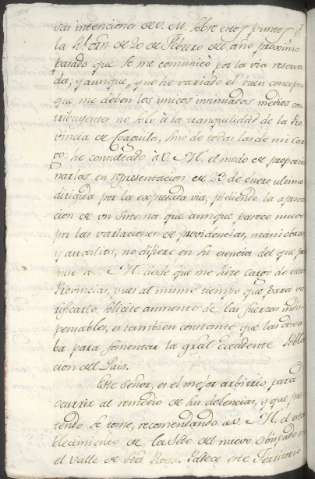 las intenciones de V. M. sobre estos puntos, y
la Rl. Orn. de 20 de Febrero del año proximo
pasado que se me comunicó por la via reserva
da, y aunque, y no he variado el buen concepto
que me deben los unicos inmediatos medios con
tribuyentes no solo á la tranquilidad de la Pro
vincia de sino de todas las de mi car
go, he consultado á V. M. el modo de proporcio
narlas en representacion de 2 de enero ultimo
dirigida por la expresada via, pidiendo la aproba
cion de un sistema que aunque parece nuevo
por las variaciones de providencias, maniobras,
y auxilios, no difiere en su esencia del que pro
puse á V. M. desde que me hize cargo de estas
Provincias, pues al mismo tiempo que para
solicité aumento de las fuerzas indis
pensables, es tambien constante que las
ba para fomentar la gral. decadente Pobla
cion del Pais.
Este Señor, es el mejor arbitrio para
ocurrir al remedio de sus dolencias, y que pre
tende se tome, recomendando á V. M. el esta
blecimiento de la Silla del nuevo Obispado en
el Valle de Sta. Rosa. este territorio